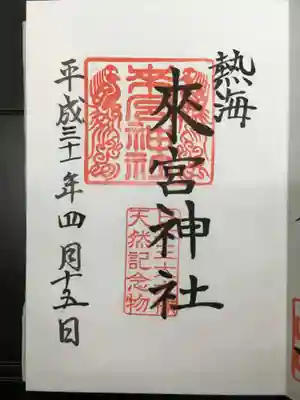 熱海
來宮神社
天然記念物
平成三十一年四月十五日